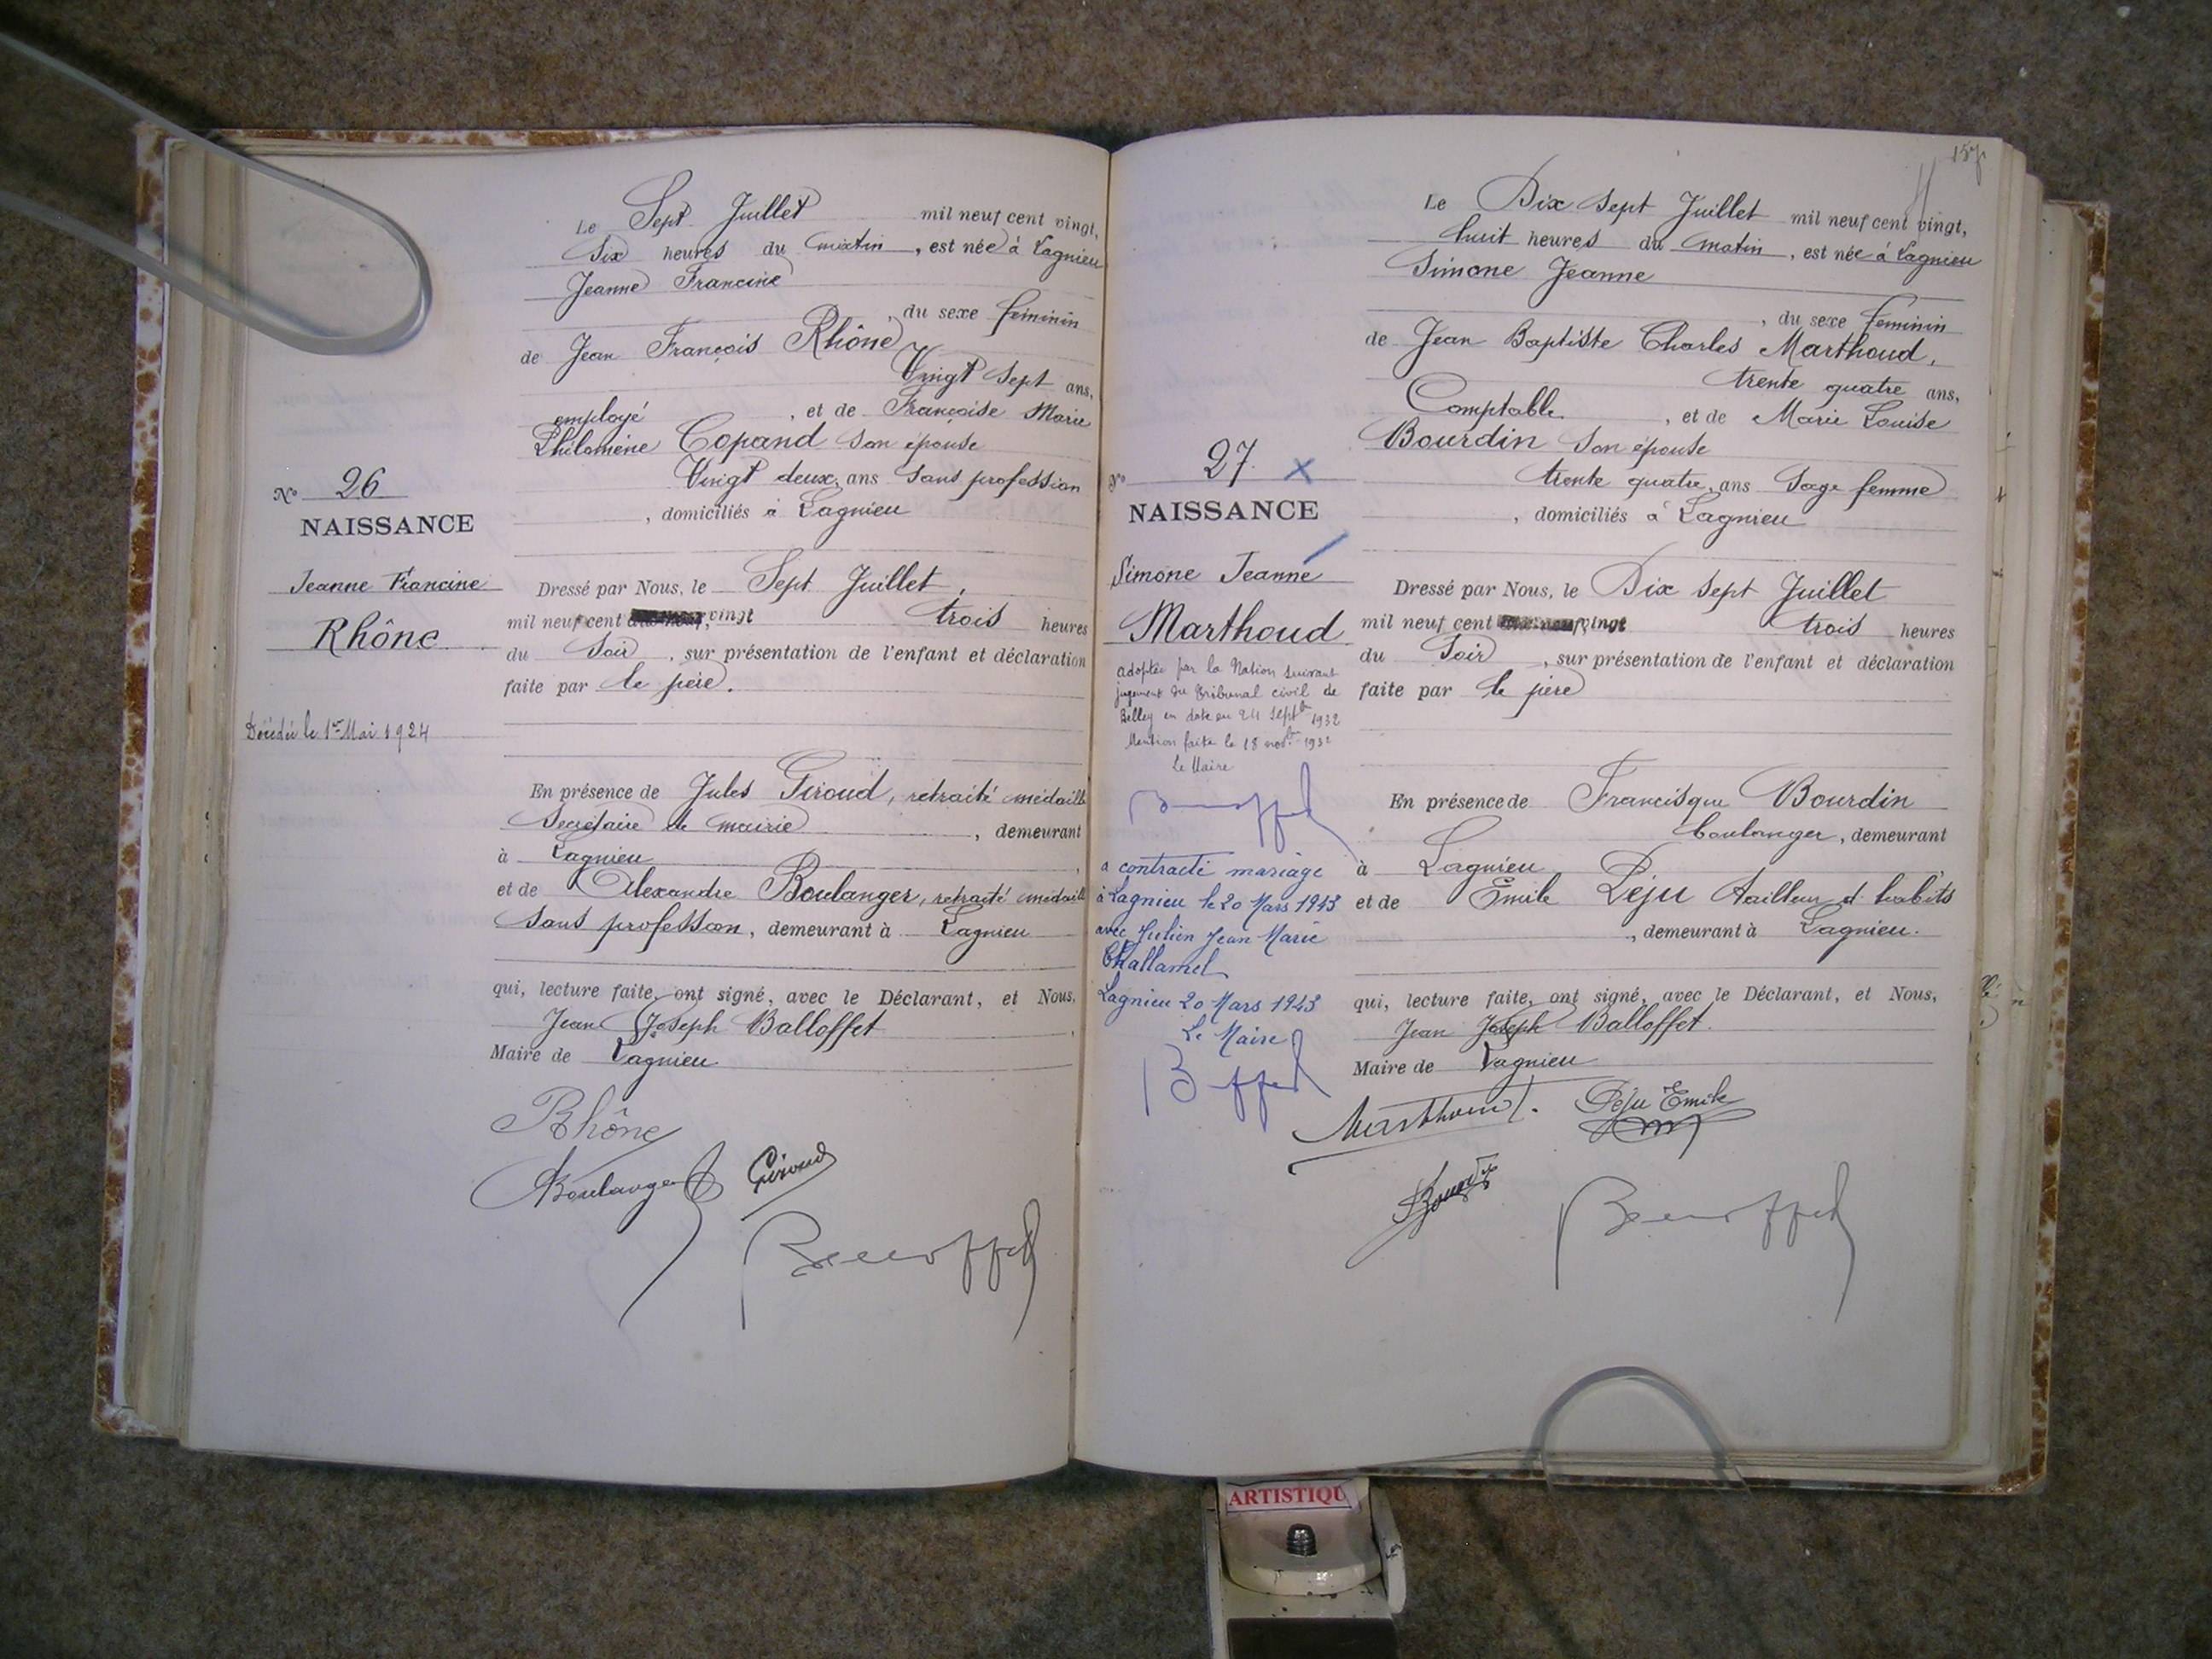 Le Sept Juillet mil neuf cent vingt,
Six heures du matin, est née à Lagnieu
Jeanne Francine
, du sexe féminin
de Jean François Rhône
Vingt Sept ans,
employé, et de Françoise Marie
Philomène Copand son épouse
Vingt deux ans sans profession
, domiciliés à Lagnieu
No 26
NAISSANCE
Jeanne Francine
Rhône
Décédée le 1er Mai 1924
Dressé par Nous, le Sept Juillet,
mil neuf cent vingt trois heures
du Soir, sur présentation de l'enfant et déclaration
faite par le père.
En présence de Jules Giroud, retraité médaillé
Secrétaire de mairie, demeurant
à Lagnieu,
et de Alexandre Boulanger, retraité médaillé
sans profession, demeurant à Lagnieu
qui, lecture faite, ont signé, avec le Déclarant, et Nous,
Jean Joseph Balloffet,
Maire de Lagnieu
Rhône
Boulanger Giroud
157
Le Dix Sept Juillet mil neuf cent vingt,
huit heures du matin, est née à Lagnieu
Simone Jeanne
, du sexe féminin
de Jean Baptiste Charles Marthoud,
trente quatre ans,
Comptable, et de Marie Louise
Bourdin son épouse
trente quatre ans Sage femme
, domiciliés à Lagnieu
No 27 X
NAISSANCE
Simone Jeanne
Marthoud
adoptée par la Nation suivant
jugement du Tribunal civil de
Belley en date du 24 Septbre 1932
Mention faite le 18 novbre 1932
Le Maire
a contracté mariage
à Lagnieu le 20 Mars 1943
avec Julien Jean Marie
Challamel
Lagnieu 20 Mars 1943
Le Maire
Dressé par Nous, le Dix Sept Juillet
mil neuf cent vingt trois heures
du Soir, sur présentation de l'enfant et déclaration
faite par le père
En présence de Francisque Bourdin
boulanger, demeurant
à Lagnieu
et de Emile Déju tailleur d'habits
, demeurant à Lagnieu.
qui, lecture faite, ont signé, avec le Déclarant, et Nous,
Jean Joseph Balloffet.
Maire de Lagnieu
Marthoud. Deju Emile
ARTISTIQU